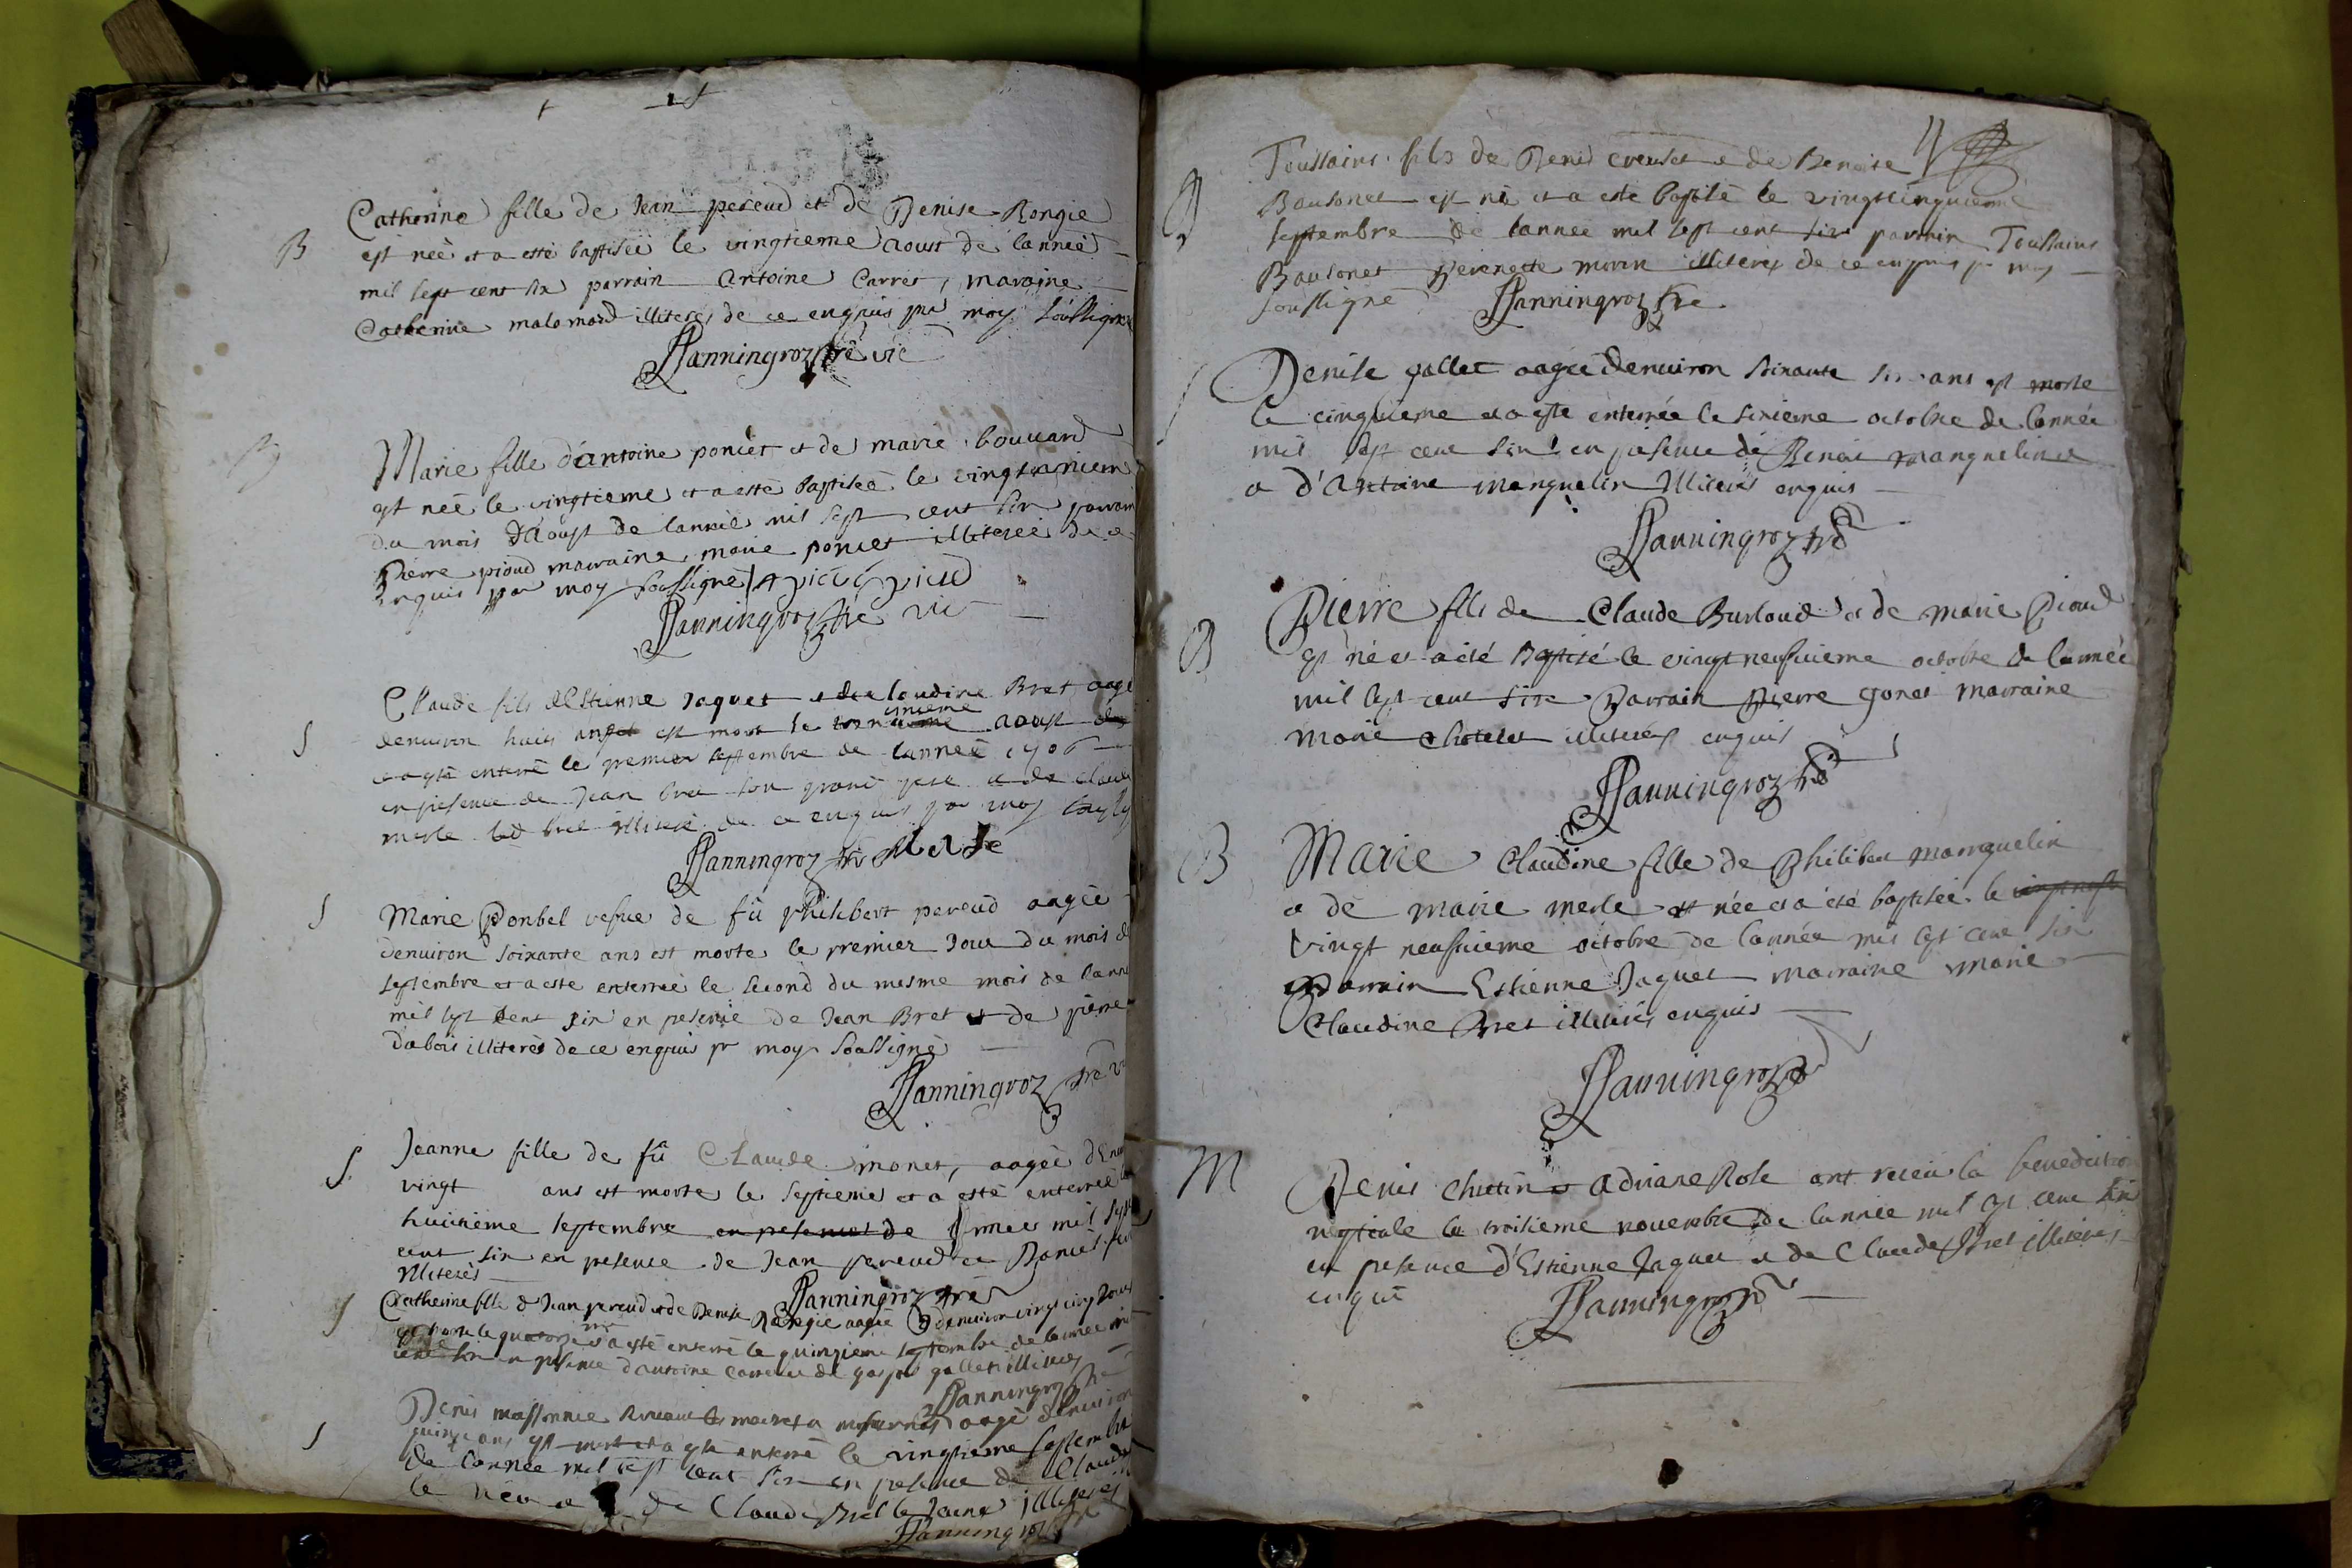 B
Catherine fille de Jean pereud et de Denise Rongie
est neé et a esté baptiseé le vingtieme aoust de lanneé
mil sept cent six parrain Antoine Carret, maraine
Catherine malamard illiteres de ce enquis par moy soussigné
Hanningroz pre vic
B
Marie fille d'antoine poncet et de marie bouuard
est neé le vingtieme et a esté baptiseé le vingt
du mois d'Aoust de lanneé mil sept cent six parrain
Pierre pioud marraine marie poncet illitereé de ce
enquis par moy soussigné
Hanningroz pre vic
S
Claude fils d'Estienne Jaquet et de claudine Bret aagé
denuiron huit est mort le aoust
et a esté enterré le premier septembre de lanneé 1706
en presence de Jean bret son grand pere et de claude
merle led bret illiteré de ce enquis par moy
Hanningroz pre
S
Marie Donbel vefue de fû philibert pereud aageé
denuiron soixante ans est morte le premier Jour du mois de
septembre et a esté enterreé le second du mesme mois de lanneé
mil sept cent six en presence de Jean Bret et de pierre
dubois illiterés de ce enquis pr moy soussigné
Hanningroz pre v
S
Jeanne fille de fû Claude monet, aageé d'En
vingt ans est morte le septieme et a esté enterreé
huitieme septembre en presence de mil sept
cent six en presence de Jean pereud et
illiterés
Hanningroz pre
S
Catherine fille de Jean pereud et de Denise Rongie aageé denuiron vingt cinq Jours
est morte le quatorze et a esté enterré le quinzieme septembre de lanneé mil
cent six en presence d'antoine Carret et de gaspar gallet illiteres
Hanningroz pre
S
Denis massonnie aagé denuiron
quinze ans est mort et a esté enterré le vingtieme septembre
de lanneé mil sept cent six en presence de Claude
et de Claude Bret le Jeune illiteres
Hanningroz pre
B
Toussains fils de Denis creuset et de Benoite
Bausonet est né et a esté baptisé le vingtcinquieme
septembre de lanneé mil sept cent six parrain Toussains
Bausonet Pernette morin illiteres de ce enquis pr moy
soussigné Hanningroz pre
S
Denise gallet aageé denuiron soixante six ans est morte
le cinquieme et a este enterrée le sixieme octobre de lannée
mil sept cent six en presence de Benoit manguelin
et d'Antoine manguelin illiterés enquis
Hanningroz pre
B
Pierre fils de Claude Burloud et de marie Pioud
est né et a été Baptisé le vingt neufuieme octobre de lannée
mil sept cent six Parrain Pierre gonet marraine
marie chatelet illiterés enquis
Hanningroz pre
B
Marie Claudine fille de Philibert manguelin
et de marie merle est née et a été baptisée le
vingt neufuieme octobre de lannée mil sept cent six
Parrain Estienne Jaquet marraine marie
Claudine Bret illiterés enquis
Hanningroz
M
Denis chretin et adriane Rose ont receu la benediction
nuptiale le troisieme nouembre de lannée mil sept cent six
en presence d'Estienne Jaquet et de Claude Bret illiterés
enquis
Hanningroz